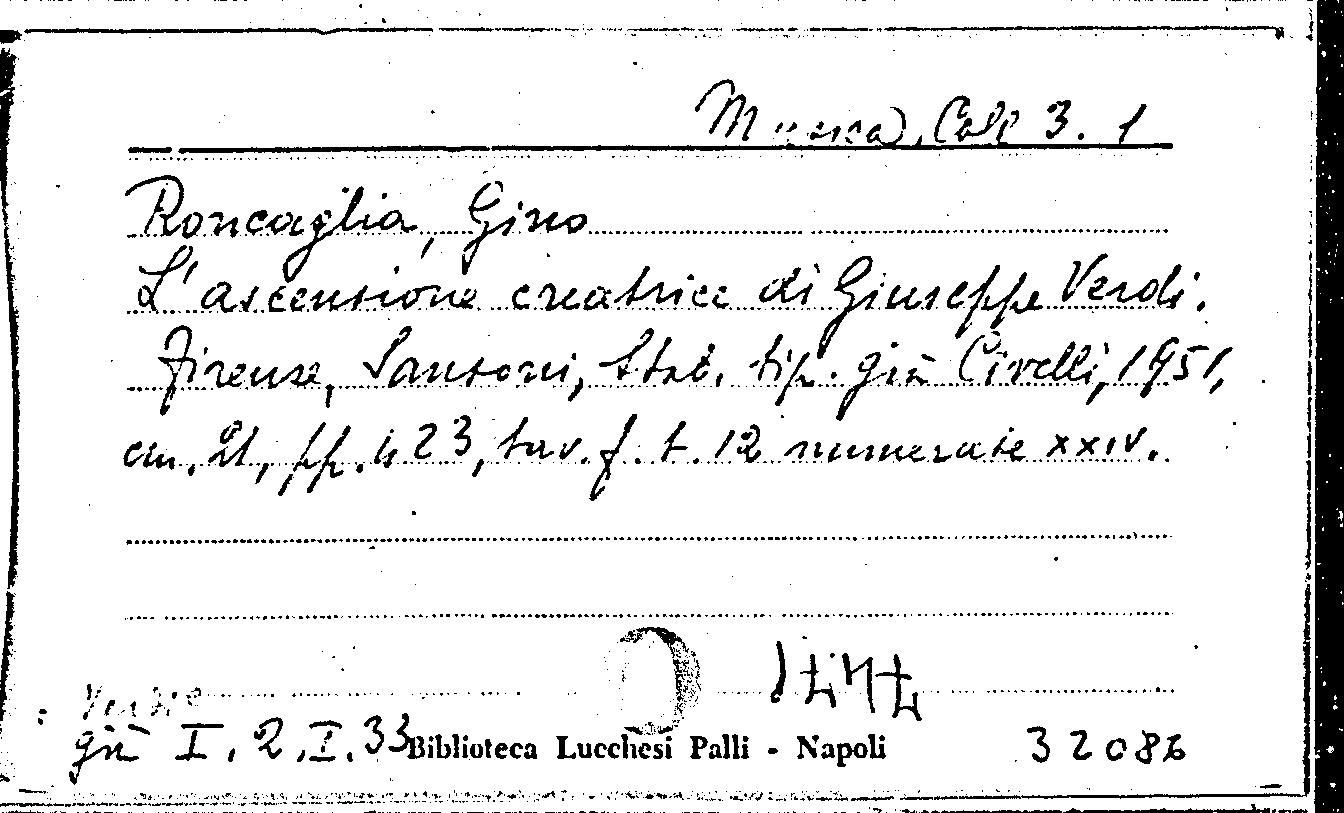 Musica, Coll 3. 1
Roncaglia, Gino
L'ascensione creatrice di Giuseppe Verdi.
Firenze, Sansoni, Stab. tip. già Civelli, 1951,
cm. 21, pp. 423, tav. f. t. 12 numerate XXIV.
già I. 2. I. 33
Biblioteca Lucchesi Palli - Napoli
32086